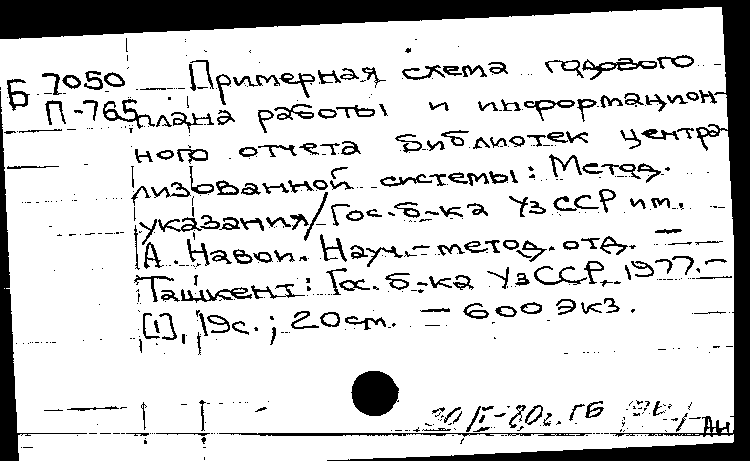 Б 7050 Примерная схема годового
П-765 плана работы и информацион-
ного отчета библиотек центра-
лизованной системы: Метод.
указания/Гос.б-ка УзССР им.
А. Навои. Науч.-метод.отд. —
Ташкент: Гос.б-ка УзССР, 1977.—
[1], 19с.; 20см. — 600 экз.
30/I-80г. ГБ
АН